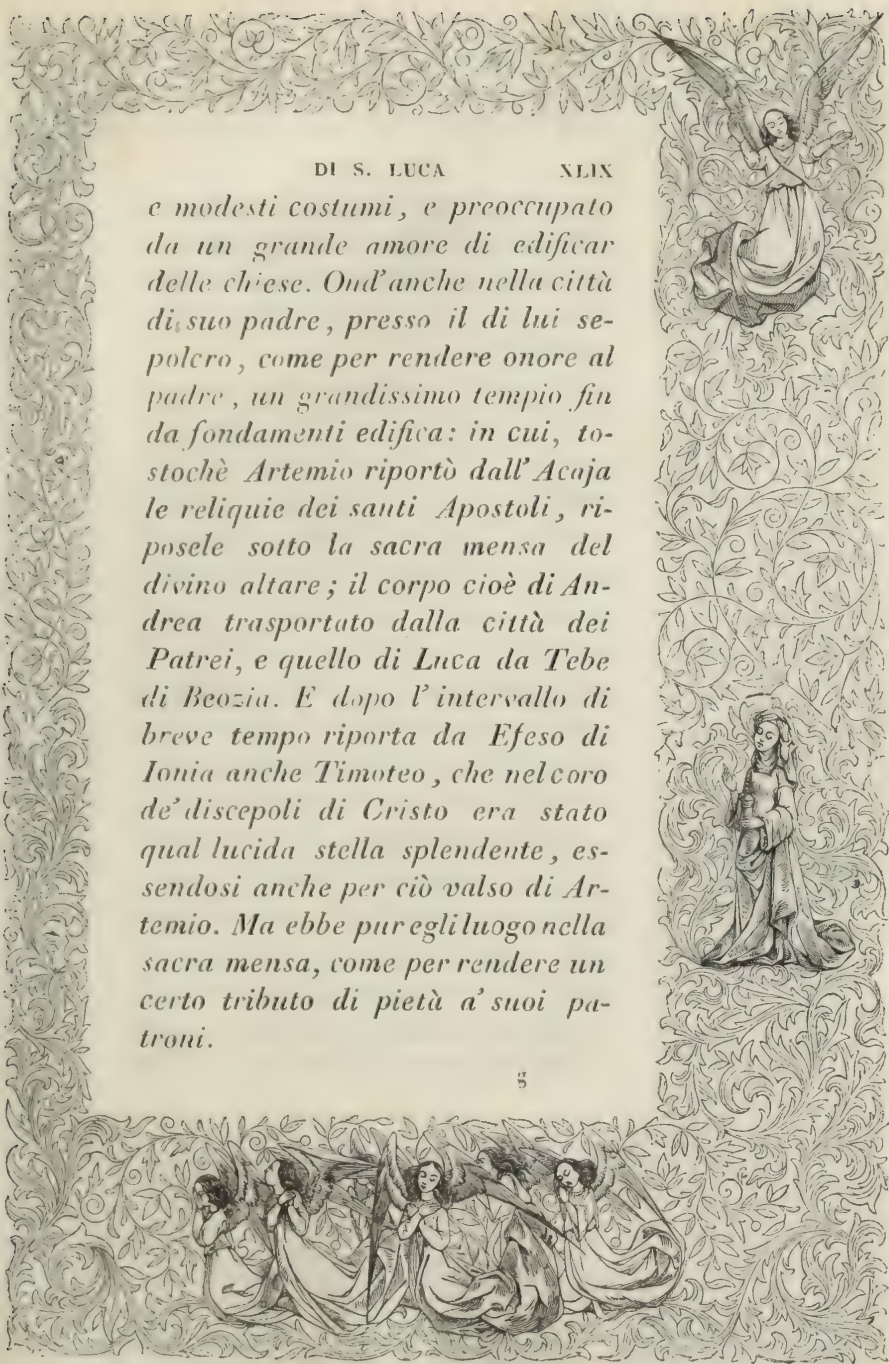 DI S. LUCA XLIX
e modesti costumi, e preoccupato
da un grande amore di edificar
delle chiese. Ond'anche nella città
di suo padre, presso il di lui se-
polcro, come per rendere onore al
padre, un grandissimo tempio fin
da fondamenti edifica: in cui, to-
stochè Artemio riportò dall'Acaja
le reliquie dei santi Apostoli, ri-
posele sotto la sacra mensa del
divino altare; il corpo cioè di An-
drea trasportato dalla città dei
Patrei, e quello di Luca da Tebe
di Beozia. E dopo l'intervallo di
breve tempo riporta da Efeso di
Ionia anche Timoteo, che nel coro
de' discepoli di Cristo era stato
qual lucida stella splendente, es-
sendosi anche per ciò valso di Ar-
temio. Ma ebbe pur egli luogo nella
sacra mensa, come per rendere un
certo tributo di pietà a' suoi pa-
troni.
g